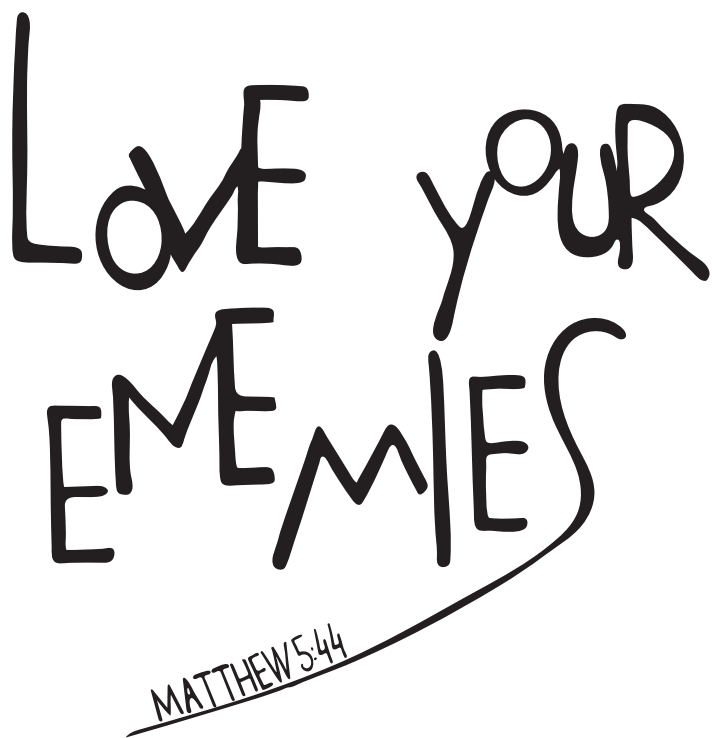 LOVE YOUR
ENEMIES
MATTHEW 5:44